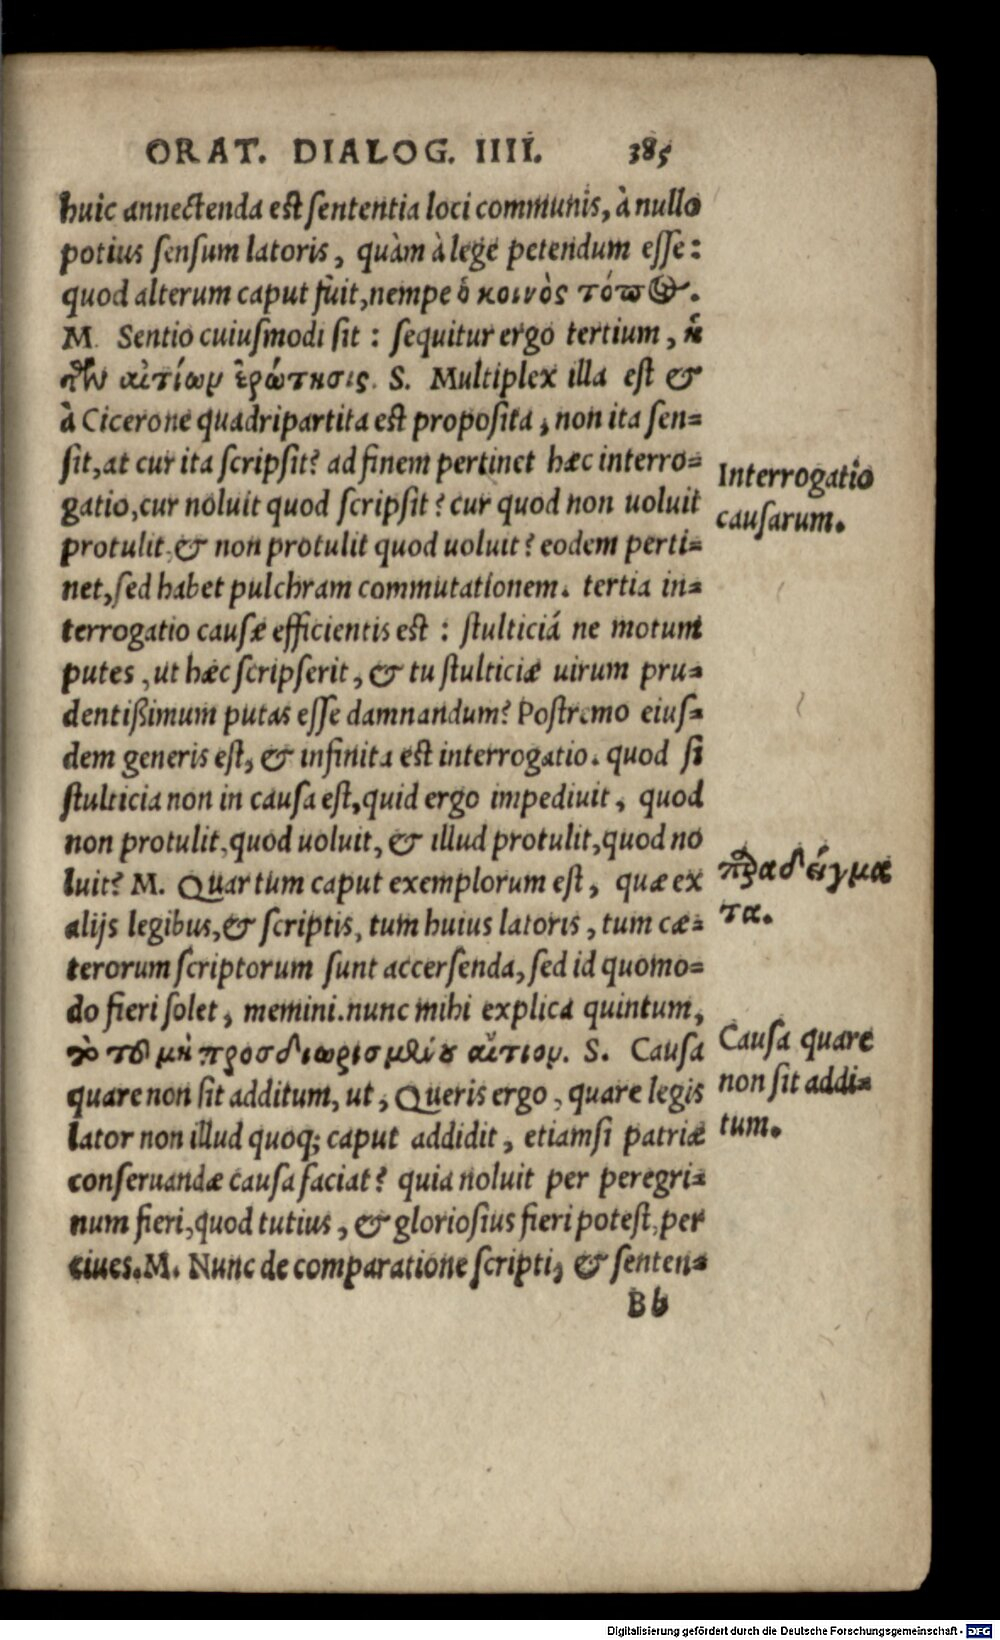 ORAT. DIALOG. IIII. 385
huic annectenda est sententia loci communis, à nullo
potius sensum latoris, quàm à lege petendum esse:
quod alterum caput fuit, nempe ὁ κοινὸς τόπος.
M. Sentio cuiusmodi sit: sequitur ergo tertium, ἡ
τῶν αἰτίων ἐρώτησις. S. Multiplex illa est &
à Cicerone quadripartita est proposita, non ita sen=
sit, at cur ita scripsit? ad finem pertinet hæc interro=
gatio, cur noluit quod scripsit? cur quod non uoluit
protulit, & non protulit quod uoluit? eodem perti=
net, sed habet pulchram commutationem. tertia in=
terrogatio causæ efficientis est: stulticiá ne motum
putes, ut hæc scripserit, & tu stulticiæ uirum pru=
dentißimum putas esse damnandum? Postremo eius=
dem generis est, & infinita est interrogatio. quod si
stulticia non in causa est, quid ergo impediuit, quod
non protulit, quod uoluit, & illud protulit, quod no
luit? M. Quartum caput exemplorum est, quæ ex
alijs legibus, & scriptis, tum huius latoris, tum cæ=
terorum scriptorum sunt accersenda, sed id quomo=
do fieri solet, memini. nunc mihi explica quintum,
τὸ τοῦ μὴ προσδιωρισμένου αἴτιον. S. Causa
quare non sit additum, ut, Queris ergo, quare legis
lator non illud quoq; caput addidit, etiamsi patriæ
conseruandæ causa faciat? quia noluit per peregri=
num fieri, quod tutius, & gloriosius fieri potest, per
ciues. M. Nunc de comparatione scripti, & senten=
Bb
Interrogatio
causarum.
παραδείγμα
τα.
Causa quare
non sit addi=
tum.
Digitalisierung gefördert durch die Deutsche Forschungsgemeinschaft - DFG